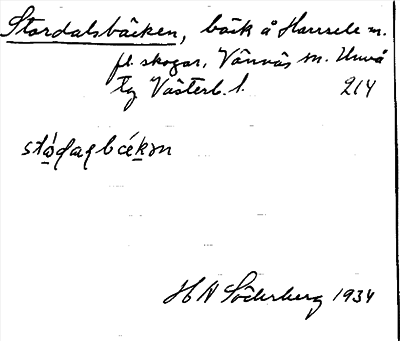 Stordalsbäcken, bäck å Harrsele m.
fl. skogar, Vännäs sn. Umeå
tg Västerb. l. 214
stó̠daɐ̯bćek̠ən
H A Söderberg 1934